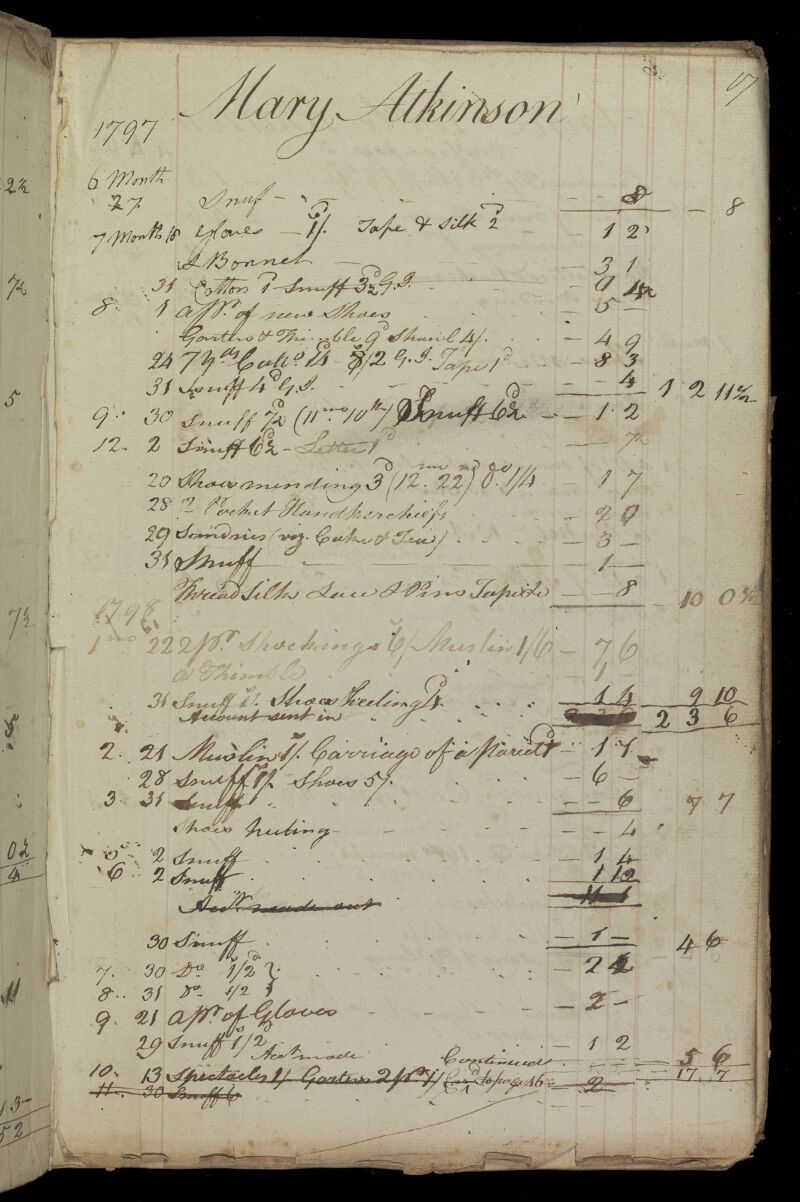 17
Mary Atkinson
1797
6 Month
27 Snuf - - - 8 - 8
7 Month 18 Gloves - 1/. Tape & Silk 2d - 1 2
A Bonnet - 3 1
31 Cotton 1d Snuff 3½d G.I.
8. 1 a pr. of new Shoes 5 -
Garters & Thimble 9d Shawl 4/. - 4 9
24 7 yds Calico 1/4 G.I. Tape 1d - 8 3
31 Snuff 4d G.I. - - 4 1 2 11½
9. 30 Snuff 7½d (11mo. 10th) Snuff 6½d - 1 2
12. 2 Snuff 6½d - Letter 1d - 7½
20 Shoes mending 3d (12mo. 22nd) do. 1/4 - 1 7
28 2 Pocket Handkerchiefs - 2 9
29 Sundries (viz. Cake & Tea) - 3 -
31 Snuff - 1 -
Thread Silk & Pins Tape &c - - 8 - 10 0½
1798
1mo. 22 2 pr. Stockings 6/ Muslin 1/6 - 7 6
a Thimble - 1 -
31 Snuff 1/. Shoes heeling 4d. - 1 4 9 10
Account sent in 2 3 6
2. 21 Muslin 1/. Carriage of a Parcel - 1 7
28 Snuff 1/. Shoes 5/. - 6 -
3 31 Snuff - - 6 7 7
Shoes heeling - - - 4
2 Snuff - 1 4
6 2 Snuff - 1 10
Acct. made out
30 Snuff - 1 - 4 6
7. 30 Do. 1/2d - 2 4
8. 31 Do. 1/2
9. 21 a pr. of Gloves - 2 -
29 Snuff 1/2d - 1 2
Acct made Continued - 5 6
10. 13 Spectacles 1/ Garters 2 pr 1/ - 2 - 17 7
11. 30 Snuff 6
2½
7½
5
7½
0 2
4
11
13-
52